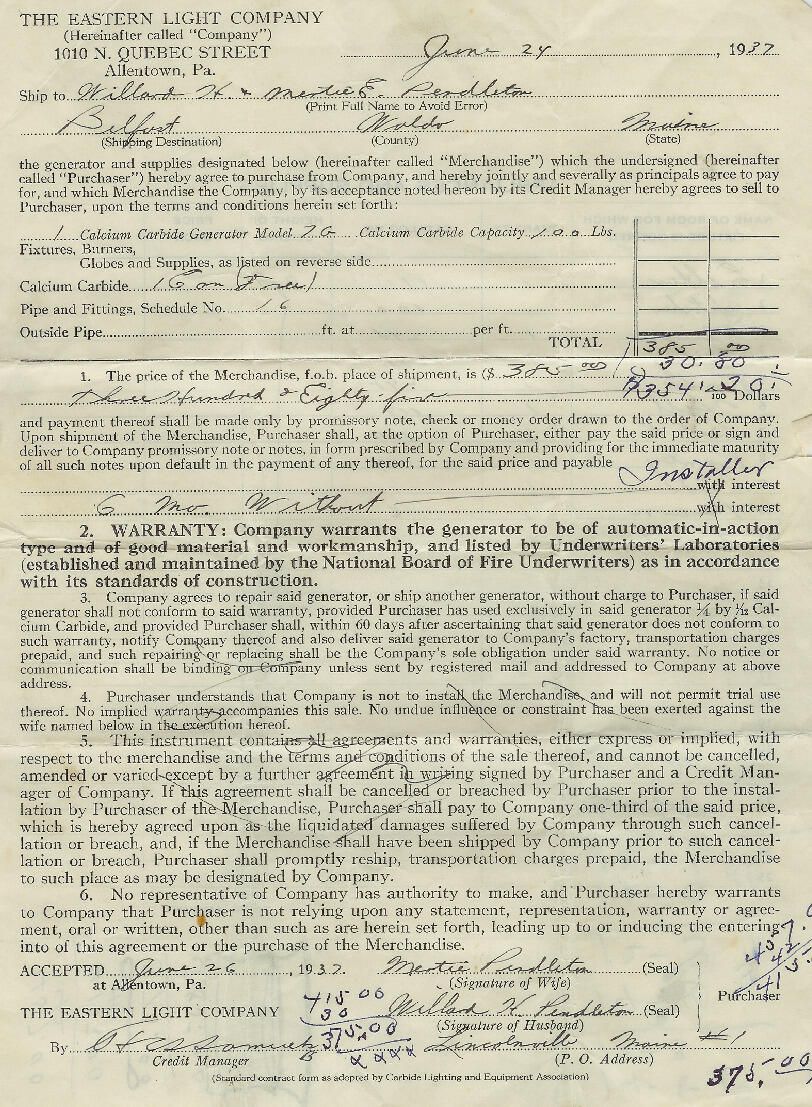 THE EASTERN LIGHT COMPANY
(Hereinafter called "Company")
1010 N. QUEBEC STREET
Allentown, Pa.
June 24, 1937
Ship to Willard H. & Mertie E. Pendleton
(Print Full Name to Avoid Error)
Belfast Waldo Maine
(Shipping Destination) (County) (State)
the generator and supplies designated below (hereinafter called "Merchandise") which the undersigned (hereinafter
called "Purchaser") hereby agree to purchase from Company, and hereby jointly and severally as principals agree to pay
for, and which Merchandise the Company, by its acceptance noted hereon by its Credit Manager hereby agrees to sell to
Purchaser, upon the terms and conditions herein set forth:
1 Calcium Carbide Generator Model 7G Calcium Carbide Capacity 100 Lbs.
Fixtures, Burners,
Globes and Supplies, as listed on reverse side
Calcium Carbide
Pipe and Fittings, Schedule No. 16
Outside Pipe ft. at per ft.
TOTAL 385 00
30.80
1. The price of the Merchandise, f.o.b. place of shipment, is ($ 385 00
$354.20
Three Hundred & Eighty five 100 Dollars
and payment thereof shall be made only by promissory note, check or money order drawn to the order of Company.
Upon shipment of the Merchandise, Purchaser shall, at the option of Purchaser, either pay the said price or sign and
deliver to Company promissory note or notes, in form prescribed by Company and providing for the immediate maturity
of all such notes upon default in the payment of any thereof, for the said price and payable
Installer
with interest
6 Mo. Without with interest
2. WARRANTY: Company warrants the generator to be of automatic-in-action
type and of good material and workmanship, and listed by Underwriters' Laboratories
(established and maintained by the National Board of Fire Underwriters) as in accordance
with its standards of construction.
3. Company agrees to repair said generator, or ship another generator, without charge to Purchaser, if said
generator shall not conform to said warranty, provided Purchaser has used exclusively in said generator ¼ by ½ Cal-
cium Carbide, and provided Purchaser shall, within 60 days after ascertaining that said generator does not conform to
such warranty, notify Company thereof and also deliver said generator to Company's factory, transportation charges
prepaid, and such repairing or replacing shall be the Company's sole obligation under said warranty. No notice or
communication shall be binding on Company unless sent by registered mail and addressed to Company at above
address.
4. Purchaser understands that Company is not to install the Merchandise, and will not permit trial use
thereof. No implied warranty accompanies this sale. No undue influence or constraint has been exerted against the
wife named below in the execution hereof.
5. This instrument contains all agreements and warranties, either express or implied, with
respect to the merchandise and the terms and conditions of the sale thereof, and cannot be cancelled,
amended or varied except by a further agreement in writing signed by Purchaser and a Credit Man-
ager of Company. If this agreement shall be cancelled or breached by Purchaser prior to the instal-
lation by Purchaser of the Merchandise, Purchaser shall pay to Company one-third of the said price,
which is hereby agreed upon as the liquidated damages suffered by Company through such cancel-
lation or breach, and, if the Merchandise shall have been shipped by Company prior to such cancel-
lation or breach, Purchaser shall promptly reship, transportation charges prepaid, the Merchandise
to such place as may be designated by Company.
6. No representative of Company has authority to make, and Purchaser hereby warrants
to Company that Purchaser is not relying upon any statement, representation, warranty or agree-
ment, oral or written, other than such as are herein set forth, leading up to or inducing the entering
into of this agreement or the purchase of the Merchandise.
ACCEPTED June 26, 1937. Mertie Pendleton (Seal)
at Allentown, Pa. (Signature of Wife)
Purchaser
415 00
30
THE EASTERN LIGHT COMPANY Willard H Pendleton (Seal)
(Signature of Husband)
375.00
By Lincolnville Maine #1
Credit Manager (P. O. Address)
375.00
(Standard contract form as adopted by Carbide Lighting and Equipment Association)